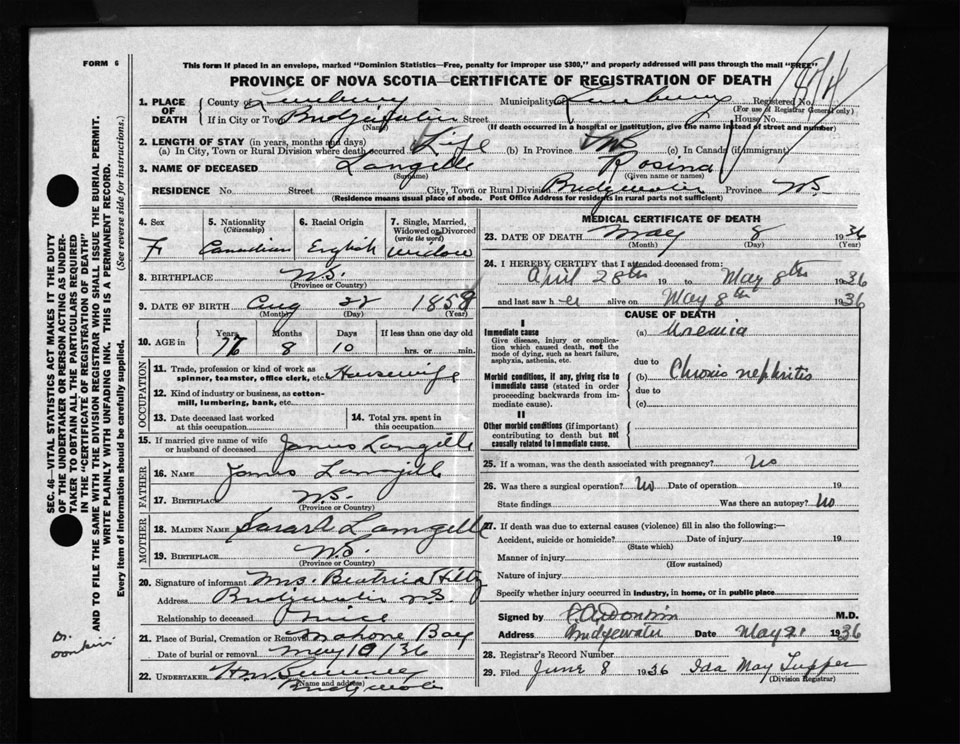 FORM 6
This form if placed in an envelope, marked "Dominion Statistics—Free, penalty for improper use $300," and properly addressed will pass through the mail "FREE"
PROVINCE OF NOVA SCOTIA—CERTIFICATE OF REGISTRATION OF DEATH
1. PLACE OF DEATH
County of Lunenburg Municipality of Lunenburg Registered No.
(For use of Registrar General only)
If in City or Town Bridgewater Street House No.
(Name) (If death occurred in a hospital or institution, give the name instead of street and number)
2. LENGTH OF STAY (in years, months and days)
(a) In City, Town or Rural Division where death occurred Life (b) In Province (c) In Canada (if immigrant)
3. NAME OF DECEASED Langille Rosina
(Surname) (Given name or names)
RESIDENCE No. Street City, Town or Rural Division Bridgewater Province N.S.
(Residence means usual place of abode. Post Office Address for residents in rural parts not sufficient)
4. Sex F
5. Nationality (Citizenship) Canadian
6. Racial Origin English
7. Single, Married, Widowed or Divorced (write the word) Widow
8. BIRTHPLACE N.S.
(Province or Country)
9. DATE OF BIRTH Aug 28 1859
(Month) (Day) (Year)
10. AGE in Years Months Days If less than one day old
76 8 10 hrs. or min.
OCCUPATION
11. Trade, profession or kind of work as spinner, teamster, office clerk, etc. Housewife
12. Kind of industry or business, as cotton-mill, lumbering, bank, etc.
13. Date deceased last worked at this occupation
14. Total yrs. spent in this occupation
15. If married give name of wife or husband of deceased James Langille
FATHER
16. NAME James Langille
17. BIRTHPLACE N.S.
(Province or Country)
MOTHER
18. MAIDEN NAME Sarah Langille
19. BIRTHPLACE N.S.
(Province or Country)
20. Signature of informant Mrs. Beatrice Hiltz
Address Bridgewater NS
Relationship to deceased Niece
21. Place of Burial, Cremation or Removal Mahone Bay
Date of burial or removal May 10/36
22. UNDERTAKER
(Name and address)
Bridgewater
MEDICAL CERTIFICATE OF DEATH
23. DATE OF DEATH May 8 1936
(Month) (Day) (Year)
24. I HEREBY CERTIFY that I attended deceased from:
April 28th 19 to May 8th 1936
and last saw her alive on May 8th 1936
CAUSE OF DEATH
I
Immediate cause
Give disease, injury or complication which caused death, not the mode of dying, such as heart failure, asphyxia, asthenia, etc.
(a) Uraemia
due to
Morbid conditions, if any, giving rise to immediate cause (stated in order proceeding backwards from immediate cause).
(b) Chronic nephritis
due to
(c)
II
Other morbid conditions (if important) contributing to death but not causally related to immediate cause.
25. If a woman, was the death associated with pregnancy? No
26. Was there a surgical operation? No Date of operation 19
State findings Was there an autopsy? No
27. If death was due to external causes (violence) fill in also the following:—
Accident, suicide or homicide? Date of injury 19
(State which)
Manner of injury
(How sustained)
Nature of injury
Specify whether injury occurred in industry, in home, or in public place
Signed by M.D.
Address Bridgewater Date May 21 1936
28. Registrar's Record Number
29. Filed June 8 1936 Ida May Tupper
(Division Registrar)
SEC. 46—VITAL STATISTICS ACT MAKES IT THE DUTY
OF THE UNDERTAKER OR PERSON ACTING AS UNDER-
TAKER TO OBTAIN ALL THE PARTICULARS REQUIRED
IN THE "CERTIFICATE OF REGISTRATION OF DEATH"
AND TO FILE THE SAME WITH THE DIVISION REGISTRAR WHO SHALL ISSUE THE BURIAL PERMIT.
WRITE PLAINLY WITH UNFADING INK. THIS IS A PERMANENT RECORD.
Every item of information should be carefully supplied. (See reverse side for instructions.)
Dr.